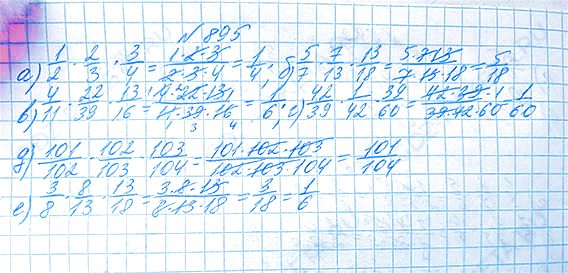 № 895
а) 1/2 · 2/3 · 3/4 = 1·2·3/2·3·4 = 1/4; б) 5/7 · 7/13 · 13/18 = 5·7·13/7·13·18 = 5/18
в) 4/11 · 22/39 · 13/16 = 4·22·13/11·39·16 = 1/6; г) 42/39 · 1/42 · 39/60 = 42·39·1/39·42·60 = 1/60
д) 101/102 · 102/103 · 103/104 = 101·102·103/102·103·104 = 101/104
е) 3/8 · 8/13 · 13/18 = 3·8·13/8·13·18 = 3/18 = 1/6